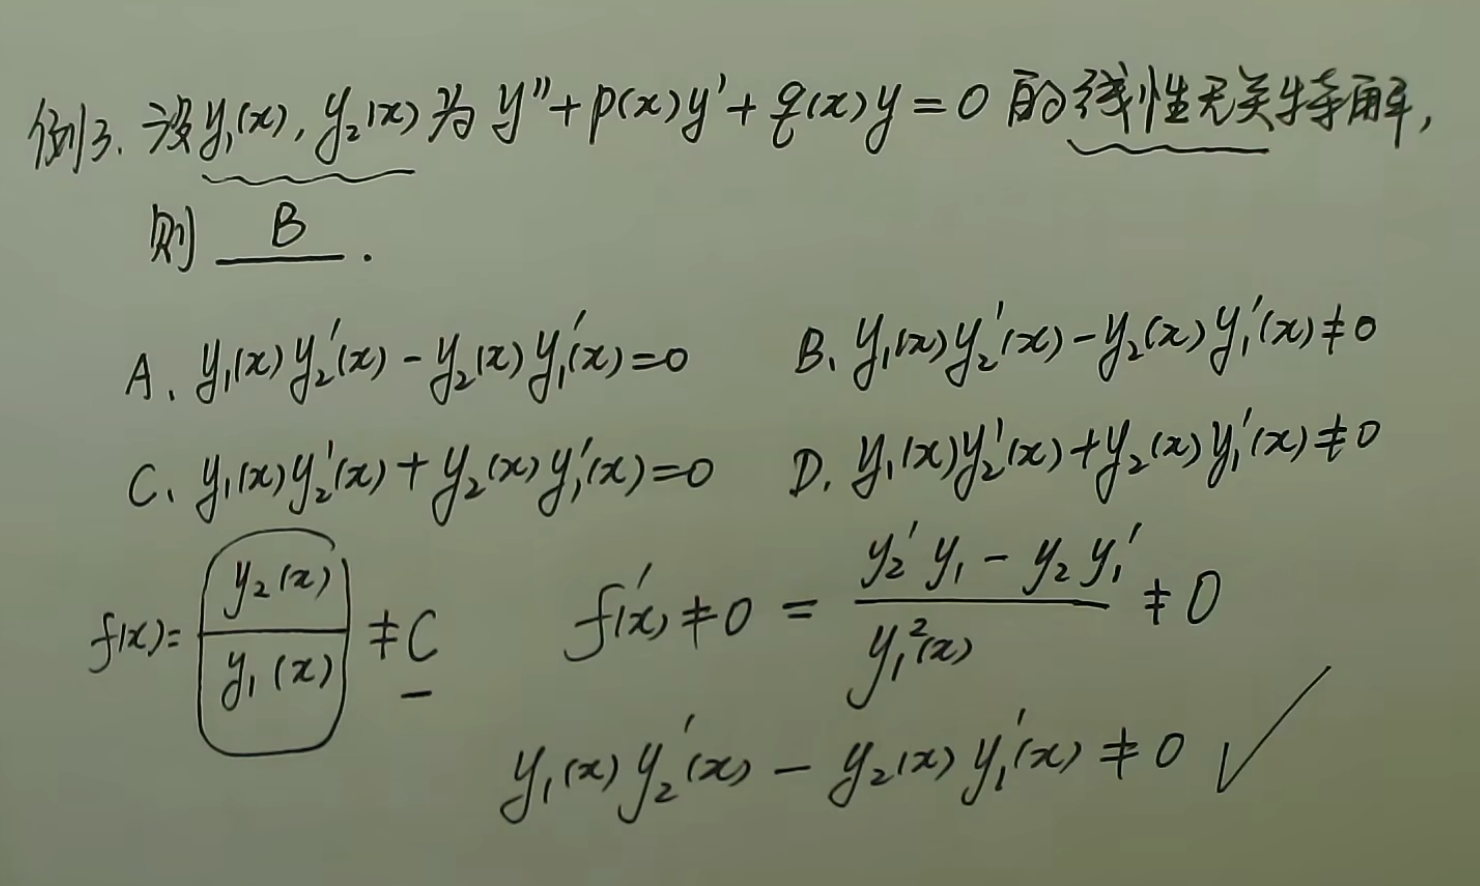 例3. 设y₁(x), y₂(x)为 y″+p(x)y′+q(x)y=0 的线性无关特解,
则 B .
A. y₁(x)y₂′(x)-y₂(x)y₁′(x)=0 B. y₁(x)y₂′(x)-y₂(x)y₁′(x)≠0
C. y₁(x)y₂′(x)+y₂(x)y₁′(x)=0 D. y₁(x)y₂′(x)+y₂(x)y₁′(x)≠0
f(x)= y₂(x)/y₁(x) ≠C f′(x)≠0 = (y₂′y₁-y₂y₁′)/y₁²(x) ≠0
y₁(x)y₂′(x)-y₂(x)y₁′(x)≠0 ✓